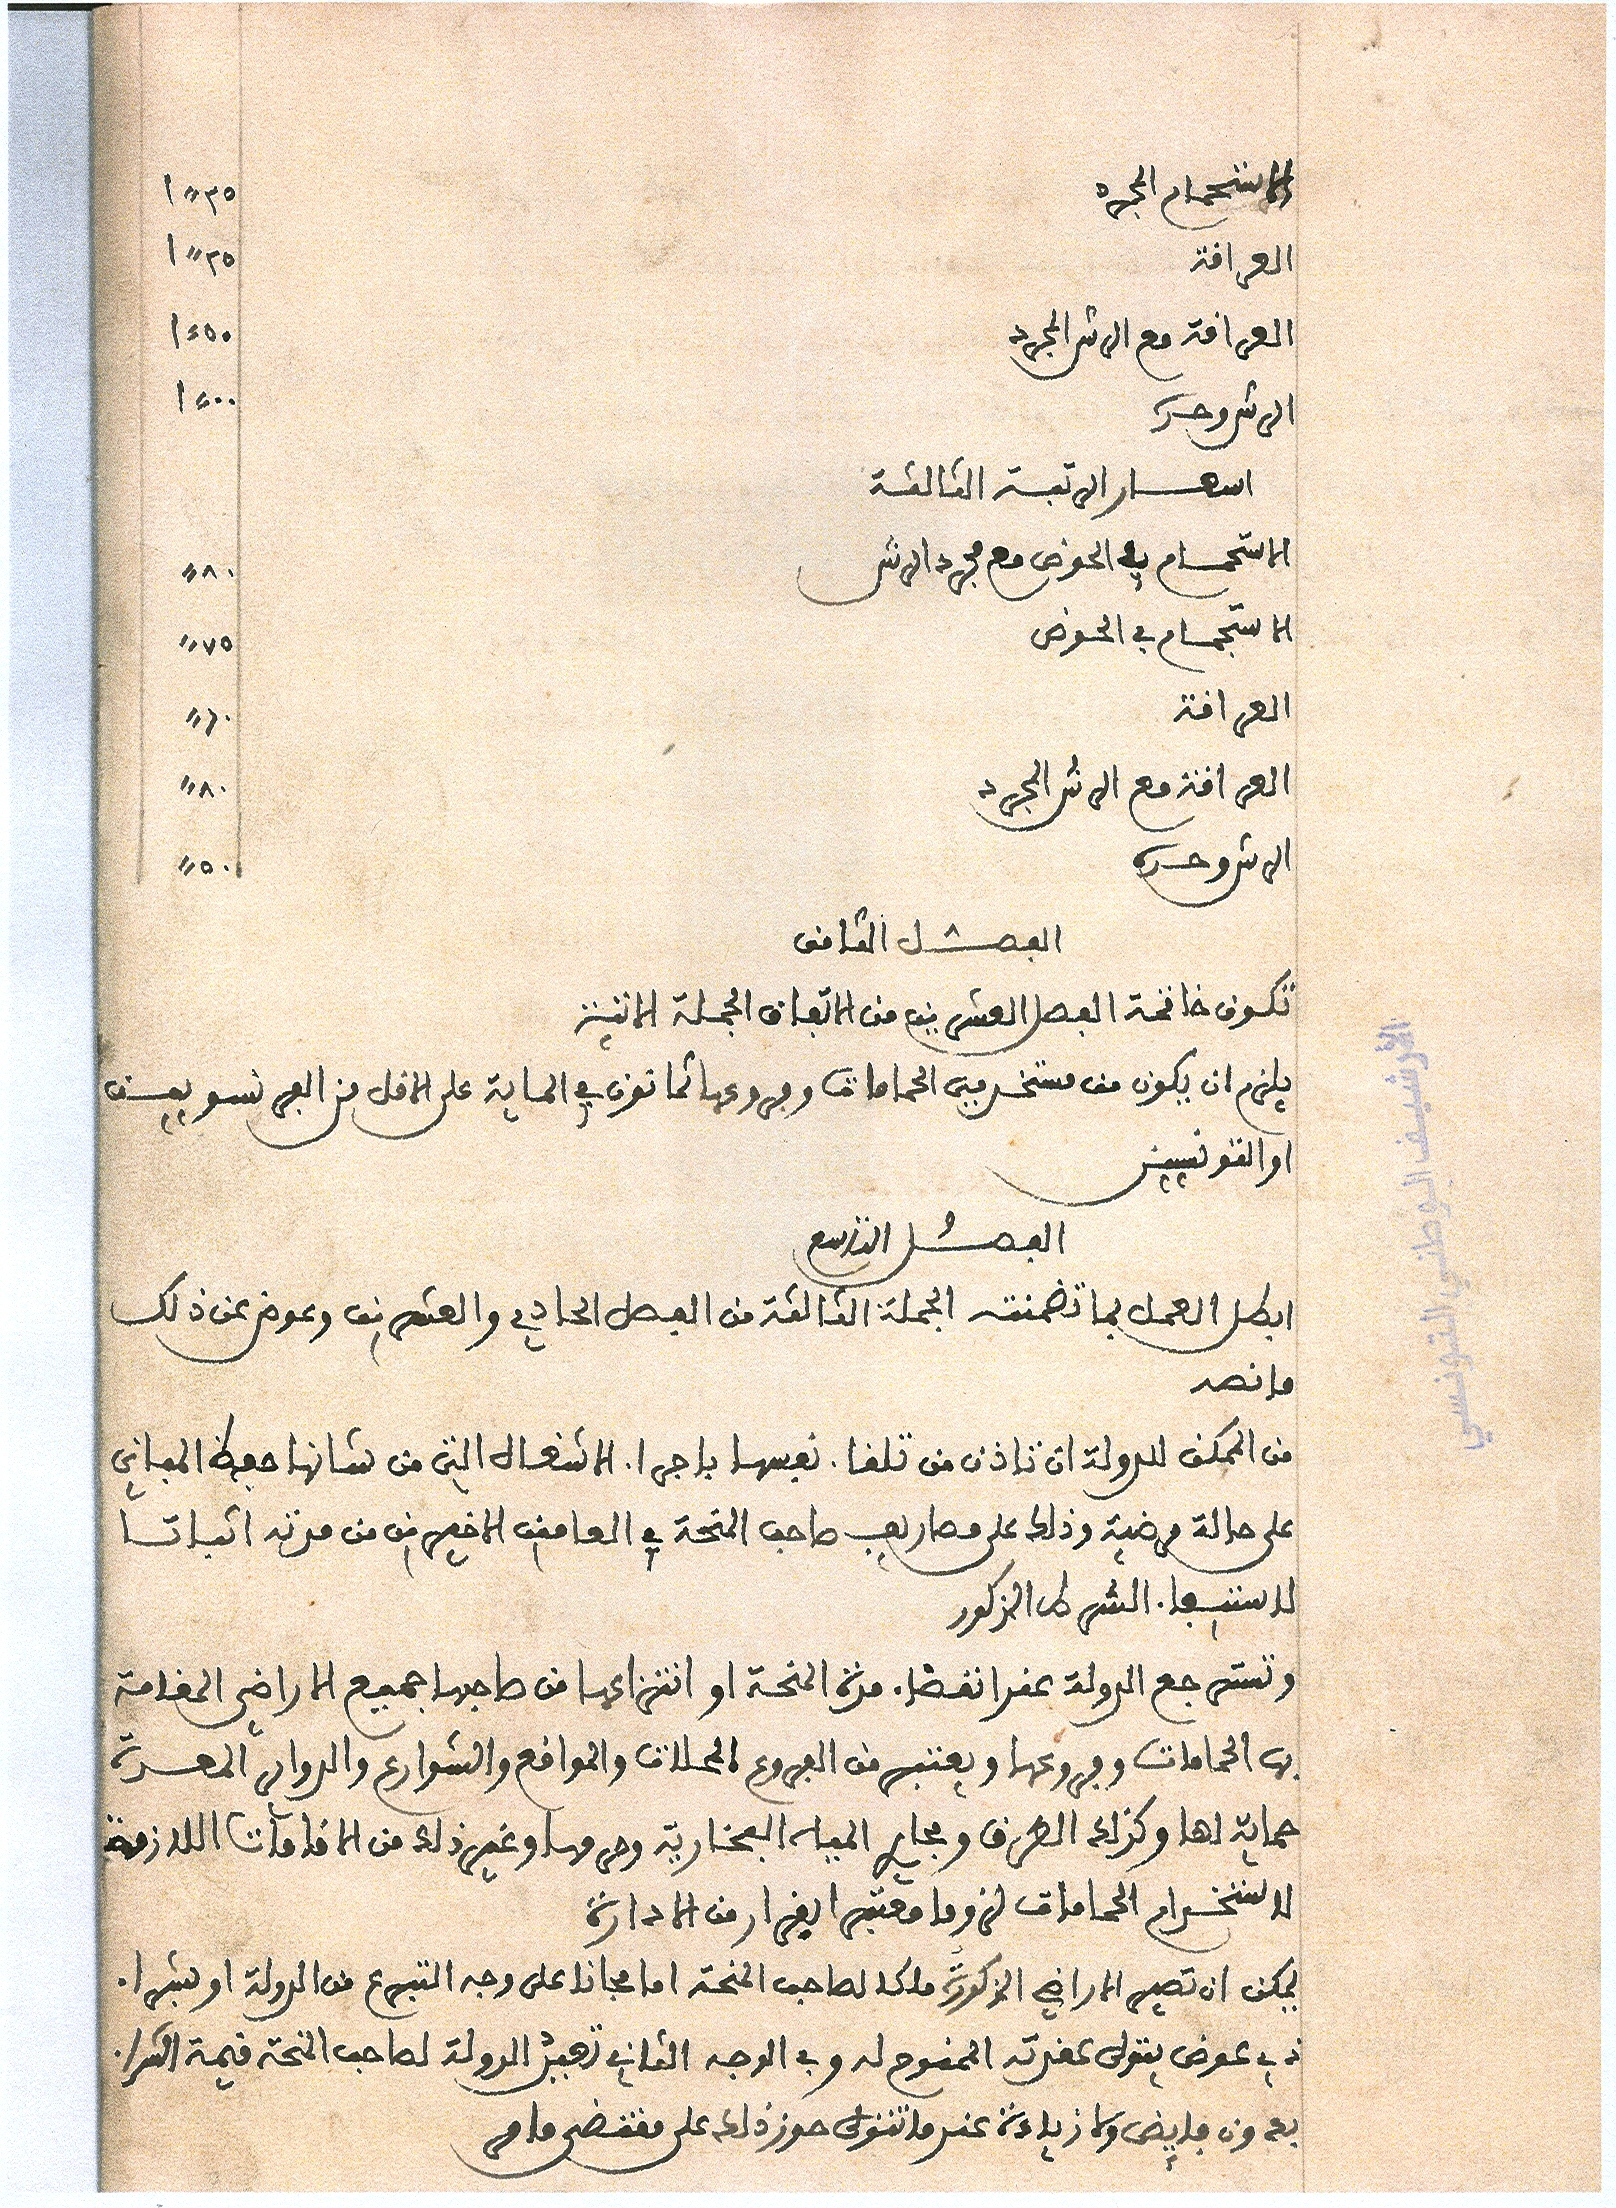 الاستحمام المجرد ١،،٢٥
العرافة ١،،٢٥
العرافة مع الرش المجرد ١،٥٠
الرش وحده ١،٠٠
اسعار الرتبة الثالثة
الاستحمام في الحوض مع مجرد الرش ،،٨٠
الاستحمام في الحوض ،،٧٥
العرافة ،،٦٠
العرافة مع الرش المجرد ،،٨٠
الرش وحده ،،٥٠
الفصل ٨ الثامن
تكون خاتمة الفصل العشرين من الاتفاق الجملة الاتية
يلزم ان يكون من مستخدمين الحمامات وفروعها ثمانون في الماية على الاقل من الفرنسويين
او التونسيين
الفصل ٩ التاسع
ابطل العمل بما تضمنته الجملة الثالثة من الفصل الحادي والعشرين وعوض عن ذلك
ما نصه
من الممكن للدولة ان تاذن من تلقاء نفسها باجراء الاشغال التي من شانها حفظ المباني
على حالة مرضية وذلك على مصاريف صاحب المنحة في العامين الاخيرين من مدته اثباتا
لاستيفاء الشرط المذكور
وتسترجع الدولة عند انقضاء مدة المنحة او انتزاعها من صاحبها جميع الاراضي المقامة
بها الحمامات وفروعها ويعتبر من الفروع المحلات والمواقع والشوارع والدواير المعدة
حماية لها وكذلك الطرق ومجاري المياه البخارية وحرمها وغير ذلك من الاقامات اللازمة
لاستخدام الحمامات لزوما معتبرا بقرار من الادارة
يمكن ان تصير الاراضي المذكورة ملكا لصاحب المنحة اما مجانا على وجه التبرع من الدولة او بشراء
ذي عوض يتولى عقدته الممنوح له وفي الوجه الثاني الدولة لصاحب المنحة قيمة الشراء
بدون فايض ولا زيادة عند ما تتولى حوز ذلك على مقتضى ما مر
الأرشيف الوطني التونسي